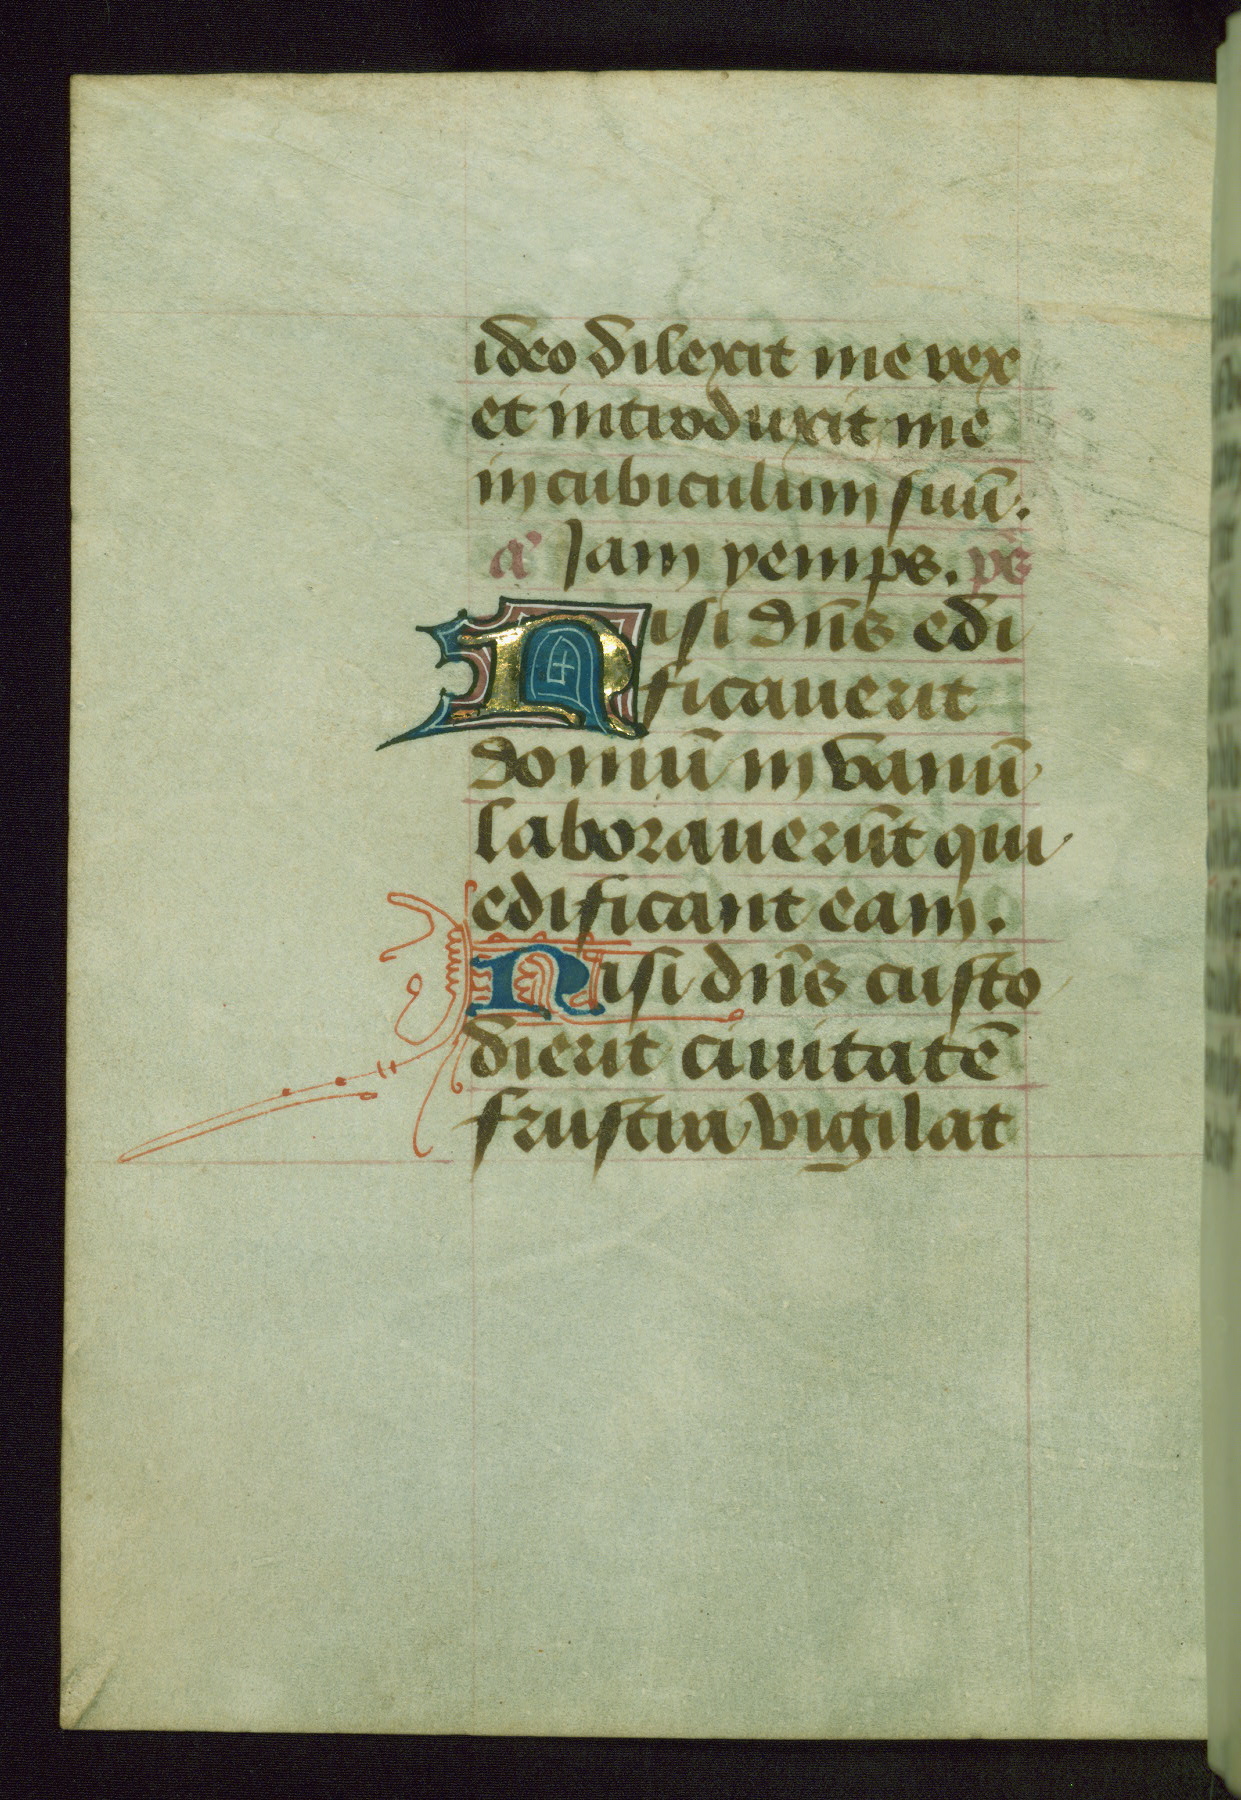 ideo dilexit me rex
et introduxit me
in cubiculum suū.
a᷑ Jam yemps. ps̄
Nisi dn̄s edi
ficauerit
domū in vanū
laborauerūt qui
edificant eam.
Nisi dn̄s custo
dierit ciuitatē
frustra vigilat